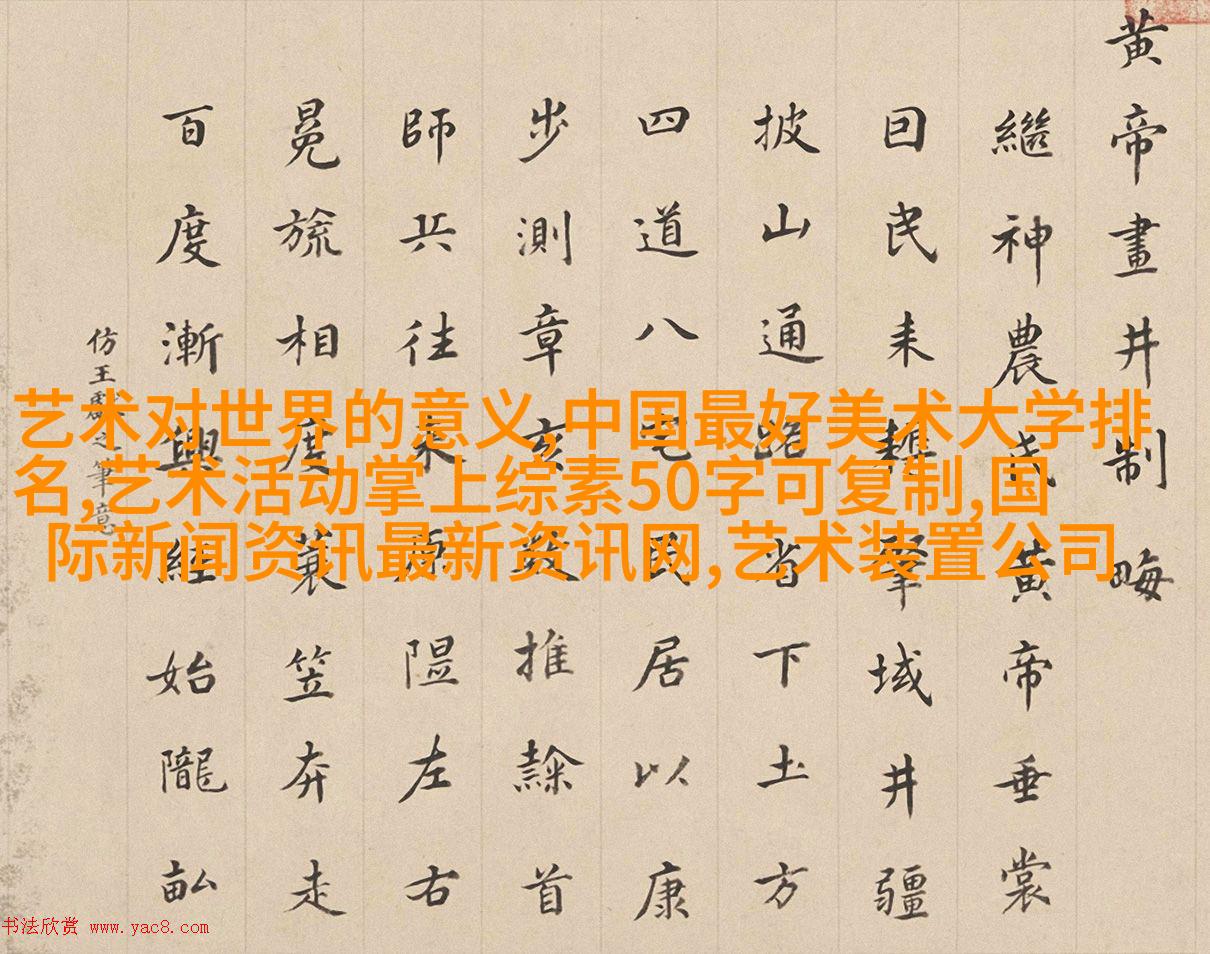 黄帝畫井制畮
繼神農氏黄帝垂裳
囙民耒耨肇域井疆
披山通路省下土方
四道八宅民居以康
步測章亥數推隸首
師兵往來原隰左右
冕旒相度蓑笠奔走
百度漸興經始隴畝
仿王獻之筆意
艺术对世界的意义,中国最好美术大学排
名,艺术活动掌上综素50字可复制,国
际新闻资讯最新资讯网,艺术装置公司
书法欣赏 www.yac8.com